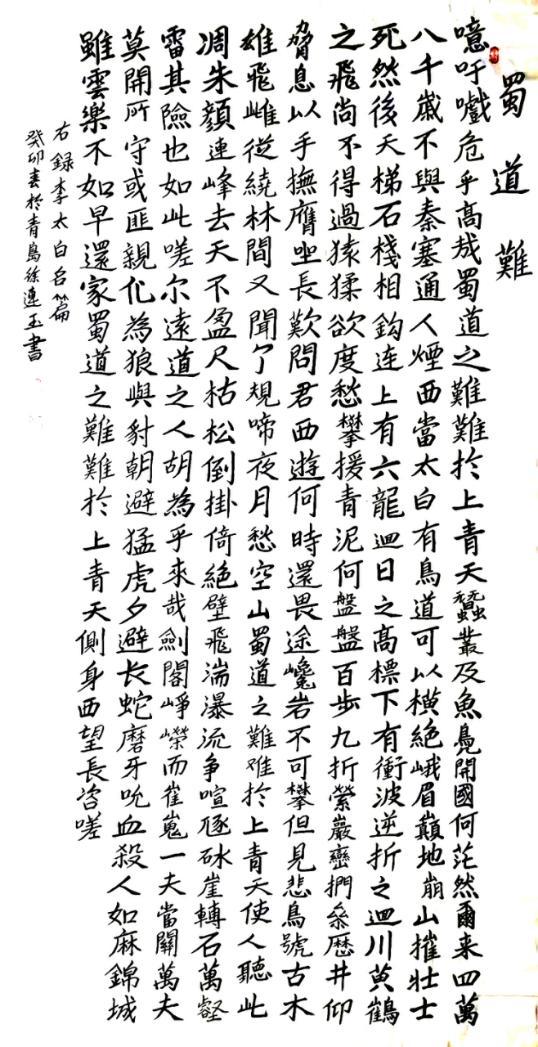 蜀道難
噫吁嚱危乎高哉蜀道之難難於上青天蠶叢及魚鳧開國何茫然爾来四萬
八千歲不與秦塞通人煙西當太白有鳥道可以橫絕峨眉巔地崩山摧壯士
死然後天梯石棧相鈎连上有六龍迴日之高標下有衝波逆折之迴川黄鶴
之飛尚不得過猿猱欲度愁攀援青泥何盤盤百步九折縈巖巒捫叅歷井仰
脅息以手撫膺坐長歎問君西遊何時還畏途巉岩不可攀但見悲鳥號古木
雄飛雌從繞林間又聞子規啼夜月愁空山蜀道之難难於上青天使人聽此
凋朱顏連峰去天不盈尺枯松倒掛倚絕壁飛湍瀑流争喧豗砯崖轉石萬壑
雷其險也如此嗟尔遠道之人胡為乎來哉劍閣崢嶸而崔嵬一夫當關萬夫
莫開所守或匪親化為狼與豺朝避猛虎夕避长蛇磨牙吮血殺人如麻錦城
雖雲樂不如早還家蜀道之難難於上青天側身西望長咨嗟
右録李太白名篇
癸卯春於青島徐連玉書